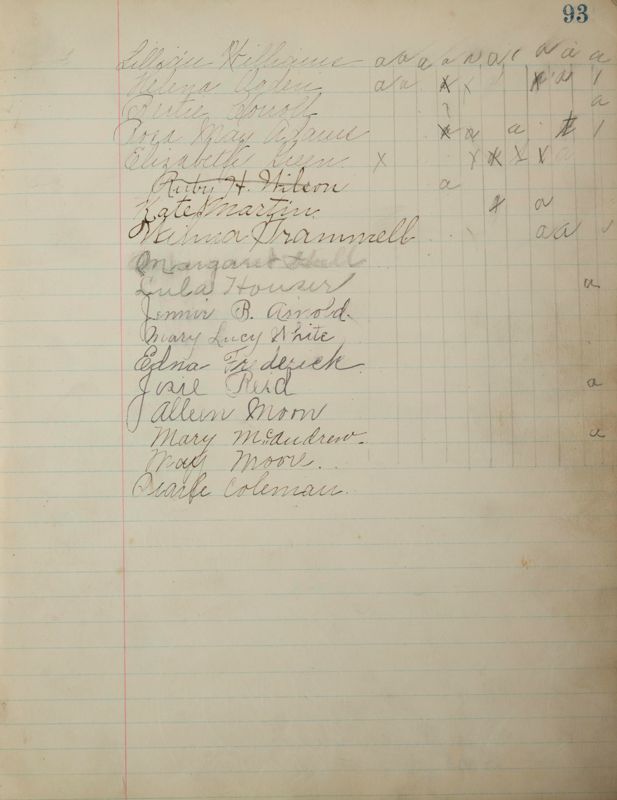 93
Lillian Williams a a a a a a a a a
Helena Ogden a a x x x a 1
Bertie a
Rosa May Adams x a a 1
Elizabeth x x x x x a
Ruby H. Wilson a
Kate Martin x a
Velma Trammell a a
Margaret Hall
Lula Houser a
Jennie B. Arnold
Mary Lucy White
Edna Frederick
Josie Reid a
Alleen Moon
Mary McAndrew. a
May Moore.
Coleman.